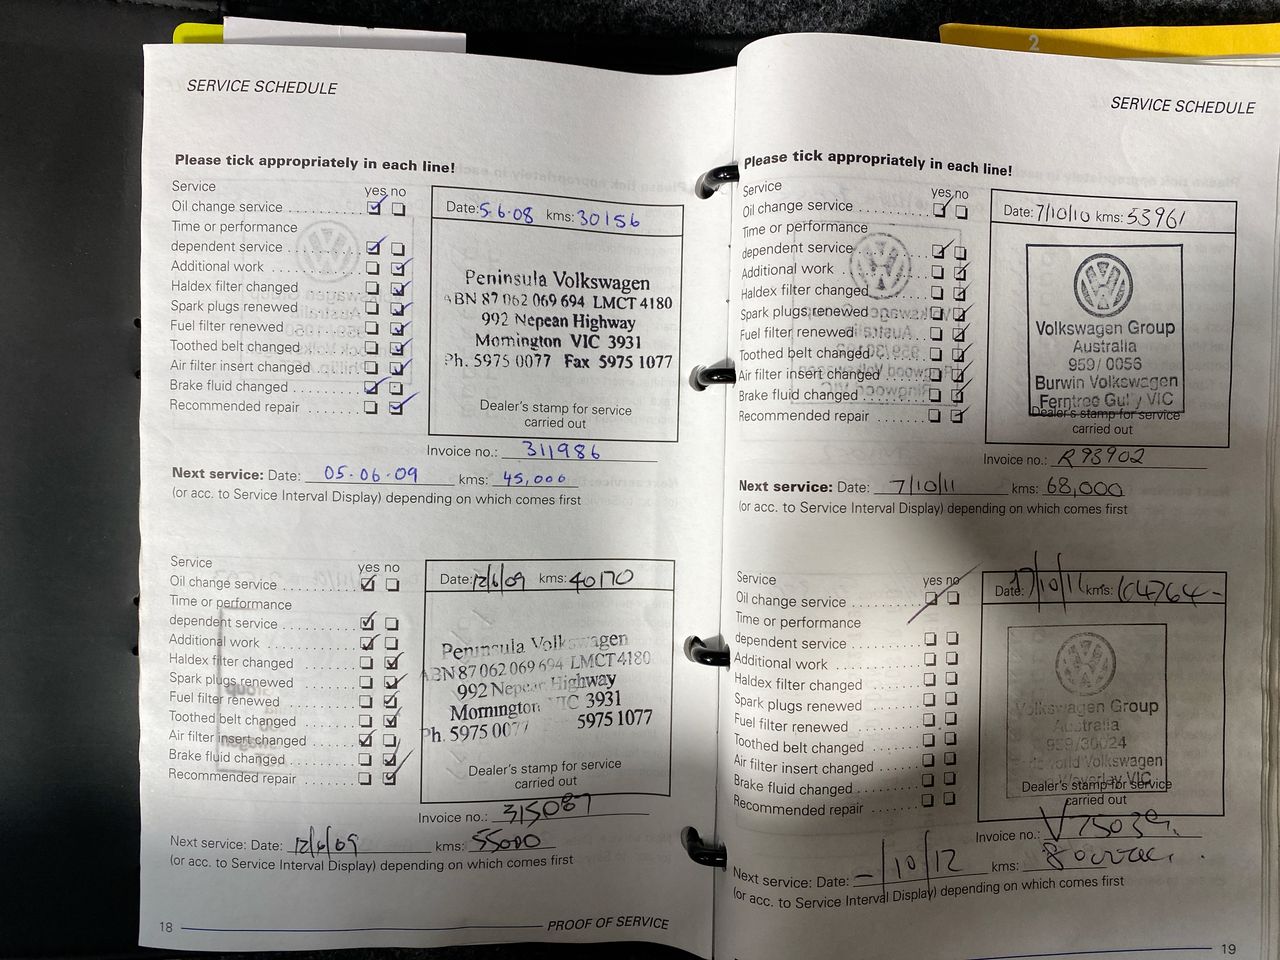 SERVICE SCHEDULE
Please tick appropriately in each line!
Service
yes no
Oil change service
Time or performance
dependent service
Additional work
Haldex filter changed
Spark plugs renewed
Fuel filter renewed
Toothed belt changed
Air filter insert changed
Brake fluid changed
Recommended repair
Date: 5.6.08 kms: 30156
Peninsula Volkswagen
ABN 87 062 069 694 LMCT 4180
992 Nepean Highway
Mornington VIC 3931
Ph. 5975 0077 Fax 5975 1077
Dealer's stamp for service
carried out
Invoice no.: 311986
Next service: Date: 05.06.09 kms: 45,000
(or acc. to Service Interval Display) depending on which comes first
Service
yes no
Oil change service
Time or performance
dependent service
Additional work
Haldex filter changed
Spark plugs renewed
Fuel filter renewed
Toothed belt changed
Air filter insert changed
Brake fluid changed
Recommended repair
Date: 12/6/09 kms: 40170
Peninsula Volkswagen
ABN 87 062 069 694 LMCT 4180
992 Nepean Highway
Mornington VIC 3931
Ph. 5975 007 5975 1077
Dealer's stamp for service
carried out
Invoice no.: 315087
Next service: Date: 12/6/09 kms: 55000
(or acc. to Service Interval Display) depending on which comes first
18 PROOF OF SERVICE
2
SERVICE SCHEDULE
Please tick appropriately in each line!
Service
yes no
Oil change service
Time or performance
dependent service
Additional work
Haldex filter changed
Spark plugs renewed
Fuel filter renewed
Toothed belt changed
Air filter insert changed
Brake fluid changed
Recommended repair
Date: 7/10/10 kms: 53961
Volkswagen Group
Australia
959/0056
Burwin Volkswagen
Ferntree Gully VIC
Dealer's stamp for service
carried out
Invoice no.: R93902
Next service: Date: 7/10/11 kms: 68,000
(or acc. to Service Interval Display) depending on which comes first
Service
yes no
Oil change service
Time or performance
dependent service
Additional work
Haldex filter changed
Spark plugs renewed
Fuel filter renewed
Toothed belt changed
Air filter insert changed
Brake fluid changed
Recommended repair
Date: 17/10/11 kms:
Volkswagen Group
Australia
959/30024
Volkswagen
Waverley VIC
Dealer's stamp for service
carried out
Invoice no.:
Next service: Date: -/10/12 kms:
(or acc. to Service Interval Display) depending on which comes first
19